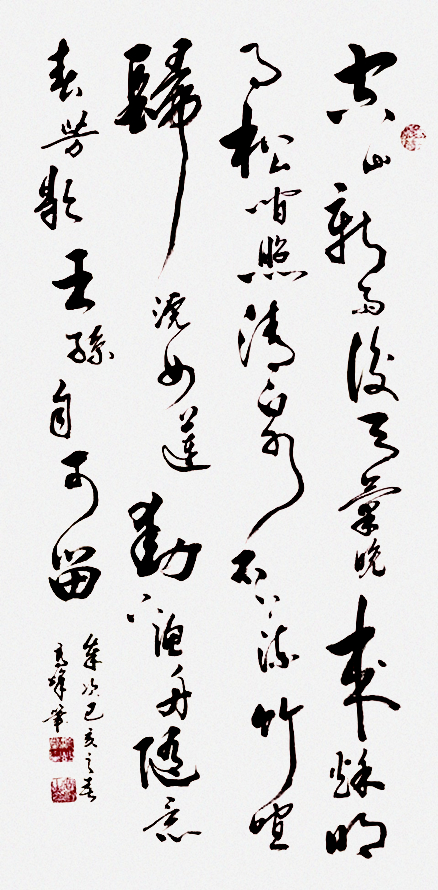 空山新雨後天氣晚來秋明
月松間照清泉石上流竹喧
歸浣女蓮動下漁舟隨意
春芳歇王孫自可留
歲次己亥之春
高峰筆